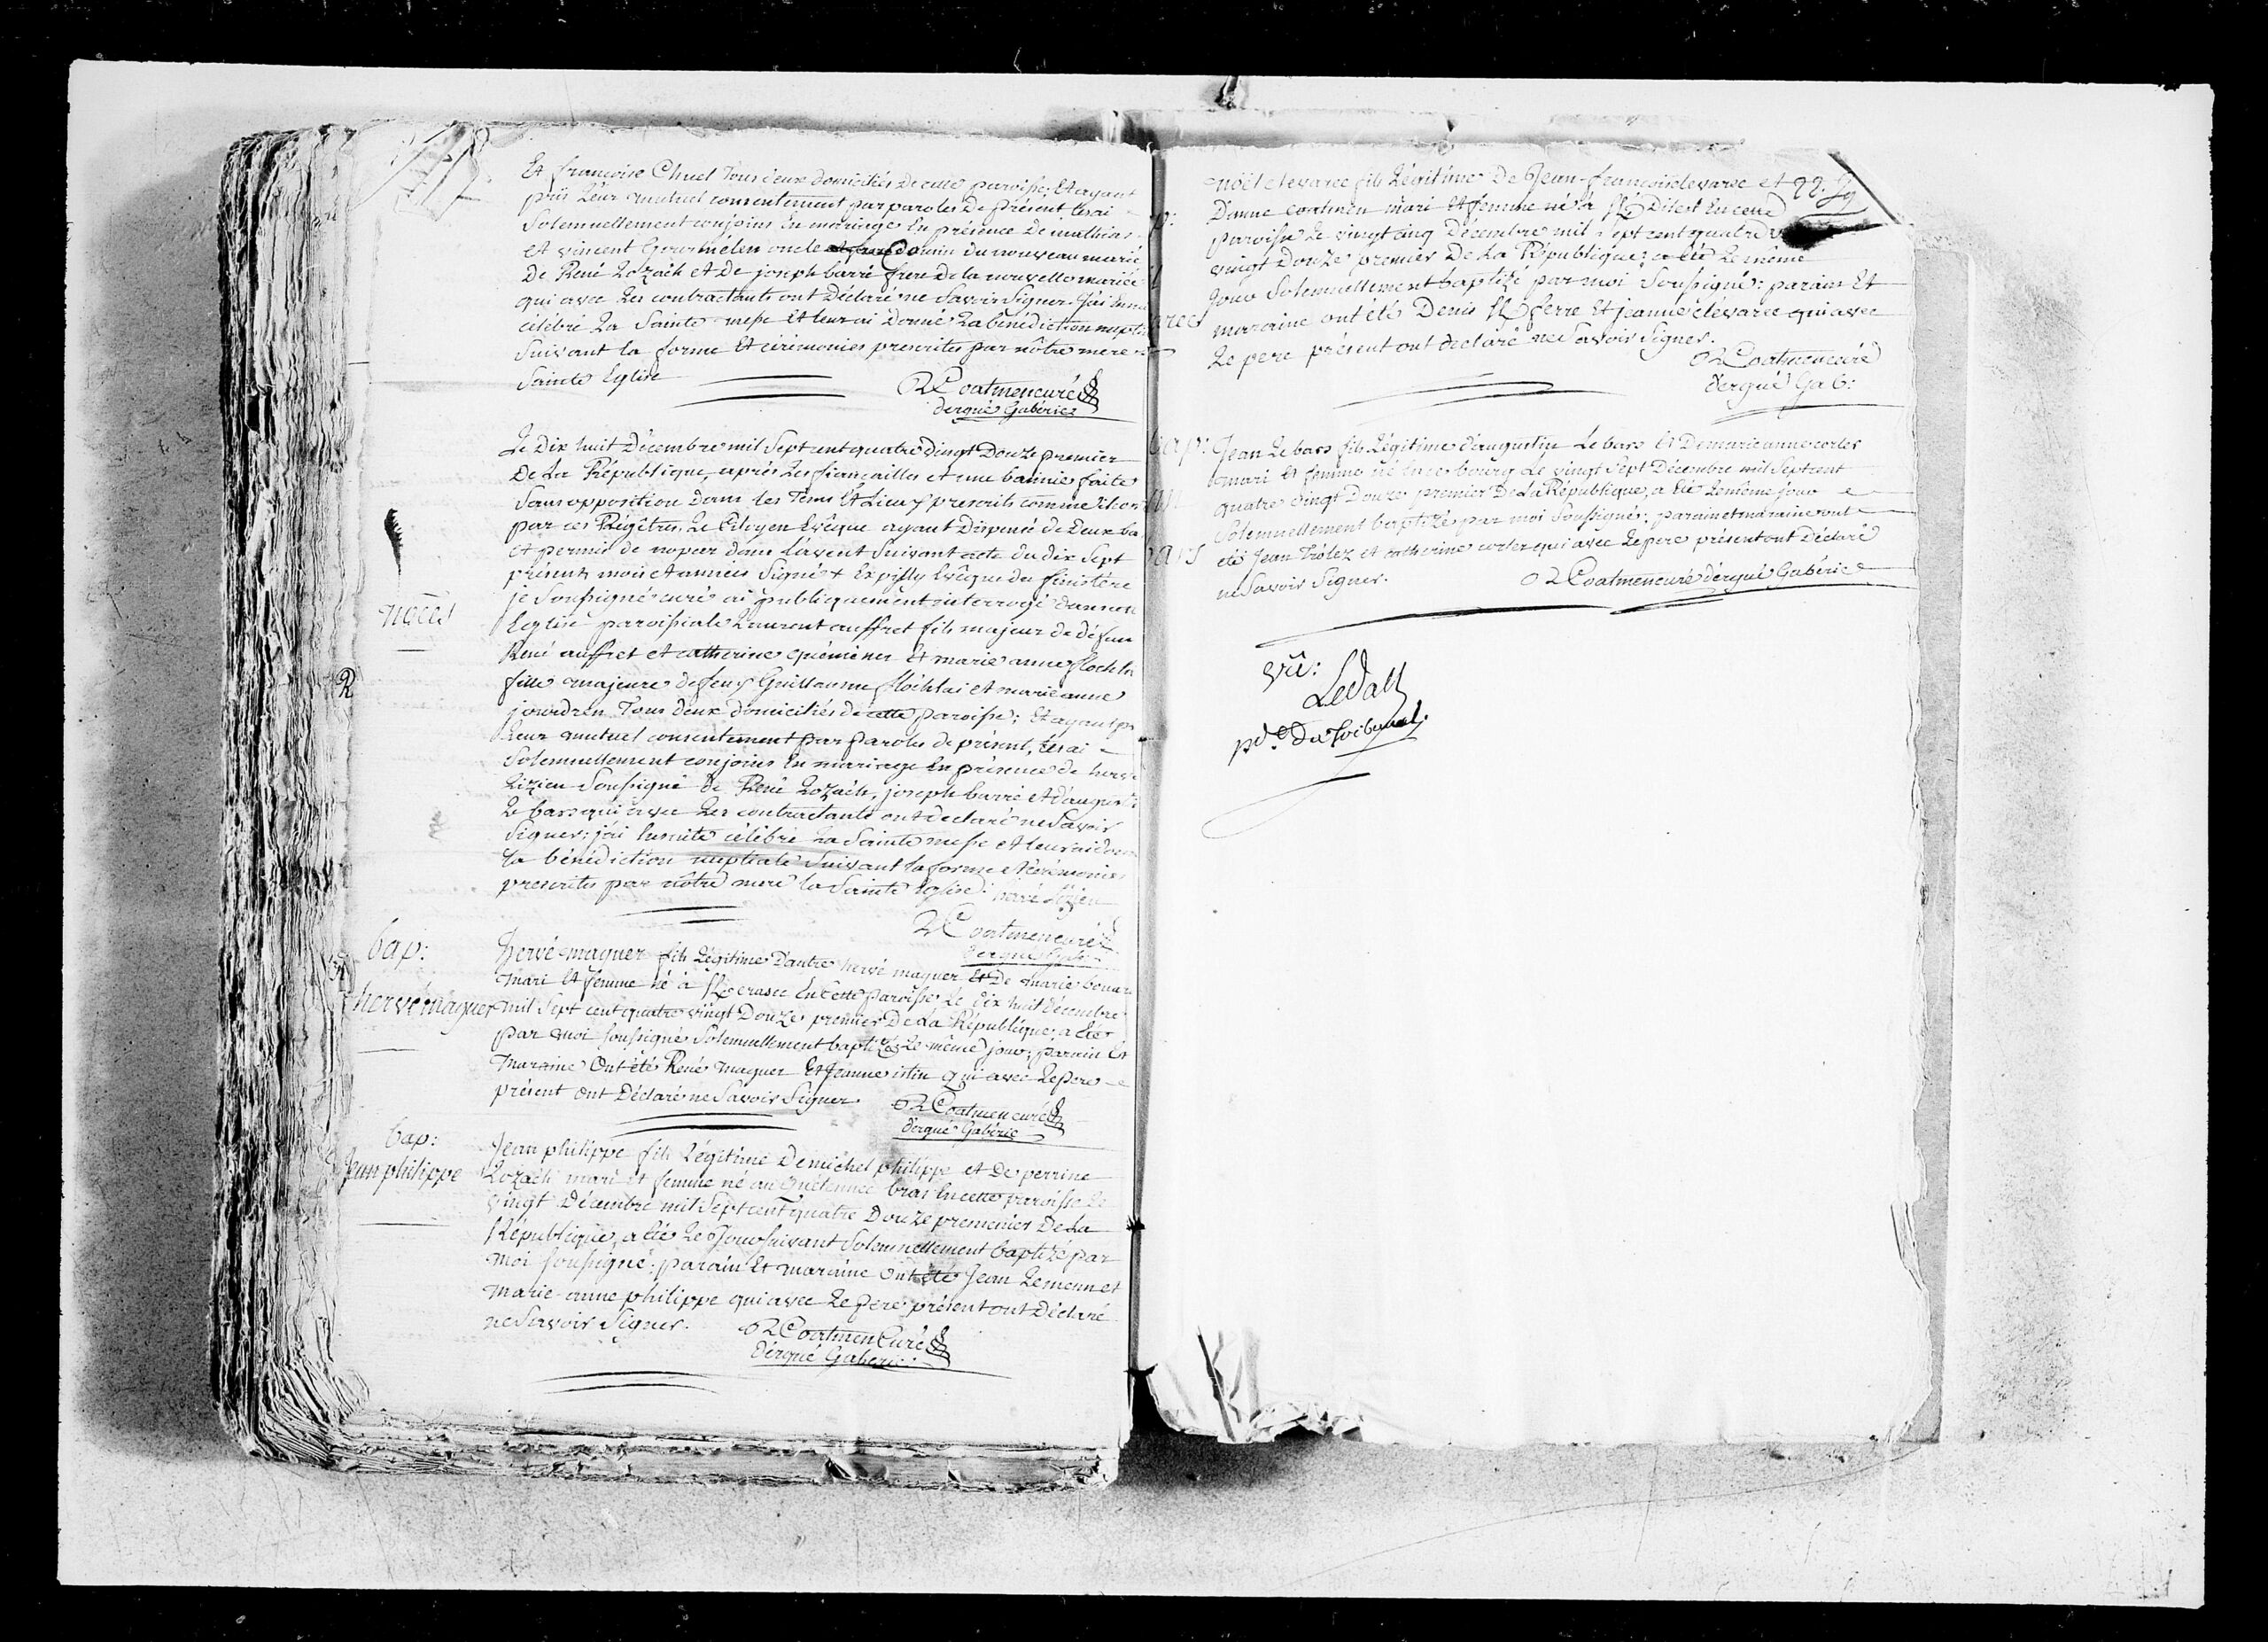 Et francoise Chuel Tous deux domiciliés de cette paroisse; Et ayant
pris Leur mutuel consentement par paroles De présent, les ai
Solemnellement conjoins En mariage En présence De mathias
et vincent Gourmélen oncle Cousin du nouveau marié
De René Lozach et De joseph barré frere de la nouvelle mariée
qui avec Les contractants ont Déclaré ne Savoir Signer. J'ai
célébré La Sainte messe Et leur ai Donné La bénédiction
Suivant la forme Et cérémonies prescrites par nôtre mere
Sainte Eglise
Coatmen curé
d'ergué Gabéric
Le Dix huit Décembre mil Sept cent quatre vingt Douze premier
De La République, après Les fiançailles et une bannie faite
Sans opposition Dans les Tems Et Lieux prescrits comme
par ces Régîtres, Le Citoyen Evêque ayant Dispensé de Deux ba
et permis de nopcer dans l'avent Suivant acte du dix Sept
présents mois et année Signé + Expilly Evêque du finistère
je Soussigné curé ai publiquement interrogé dans
nôces
Eglise paroissiale Laurent auffret fils majeur de défun
René auffret et catherine quéméner Et marie anne flochla
fille majeure de feu Guillaume flochlai et marie anne
jouedren Tous deux domiciliés de cette paroisse; Et ayant
Leur mutuel consentement par paroles de présent, Les ai
Solemnellement conjoins En mariage En présence de herv
Lizien Soussigné De René Lozach, joseph barré Et d'augus
Le bars qui avec Les contractants ont declaré ne Savoir
Signer; j'ai Ensuite célébré La Sainte messe et leur ai
La bénédiction nuptiale Suivant la forme et Cérémonies
prescrites par nôtre mere la Sainte Eglise: hervé Lizien
Coatmen curé
d'ergué Gab
bap:
hervé maguer
hervé maguer fils Légitime D'autre hervé maguer Et De marie
mari Et femme né à En cette paroisse Le dix huit décembre
mil Sept cent quatre vingt Douze premier De La République; a Eté
par moi Soussigné Solemnellement baptizé Le même jour; parain Et
maraine Ont été René maguer Et Jeanne istin Qui avec Le pere
présent ont Déclaré ne Savoir Signer
Coatmen curé
d'ergué Gabéric
bap:
Jean philippe
Jean philippe fils Légitime De michel philippe et De perrine
Lozach mari Et femme né au Quélennec bras En cette paroisse Le
vingt Décembre mil Sept cent quatre Douze prememier De La
République, a été Le Jour Suivant Solemnellement baptizé par
moi Soussigné: parain Et maraine Ont été Jean Le menn et
marie-anne philippe qui avec Le pere présent ont Déclaré
ne Savoir Signer.
Coatmen Curé
d'ergué Gaberic
Noël clevarec fils Légitime De Jean-françois clevarec et
D'anne coatmen mari Et femme né à En cette
paroisse Le vingt cinq Decembre mil Sept cent quatre
vingt Douze premier De La République; a été Le même
Jour Solemnellement baptizé par moi Soussigné: parain Et
maraine ont été Denis Et jeanne clevarec qui avec
Le pere présent ont declaré ne Savoir Signer.
Coatmen curé
d'ergué Gab:
bap:
Jean Le bars fils Légitime d'augustin Le bars Et De marie anne corler
mari Et femme né En ce bourg Le vingt Sept Décembre mil Sept cent
quatre vingt Douze premier De La République, a Eté Le même jour
Solemnellement baptizé par moi Soussigné: parain et maraine ont
été Jean et catherine corler qui avec Le pere présent ont Déclaré
ne Savoir Signer.
Coatmen curé d'ergué Gabéric
vû:
Ledall
pd.t Du Tribunal.